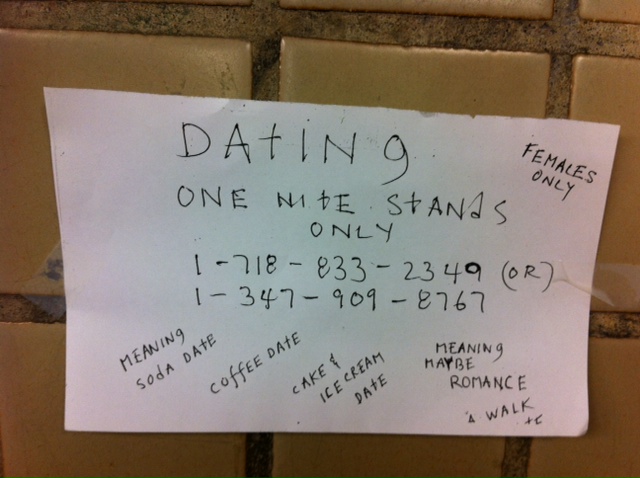 DAtING
FEMALES
ONLY
ONE NItE StANdS
ONLY
1-718-833-2349 (OR)
1-347-909-8767
MEANING
SodA DAtE
COffEE DAtE
CAKE &
ICE CREAM
DAtE
MEANING
MAYBE
ROMANCE
A WALK